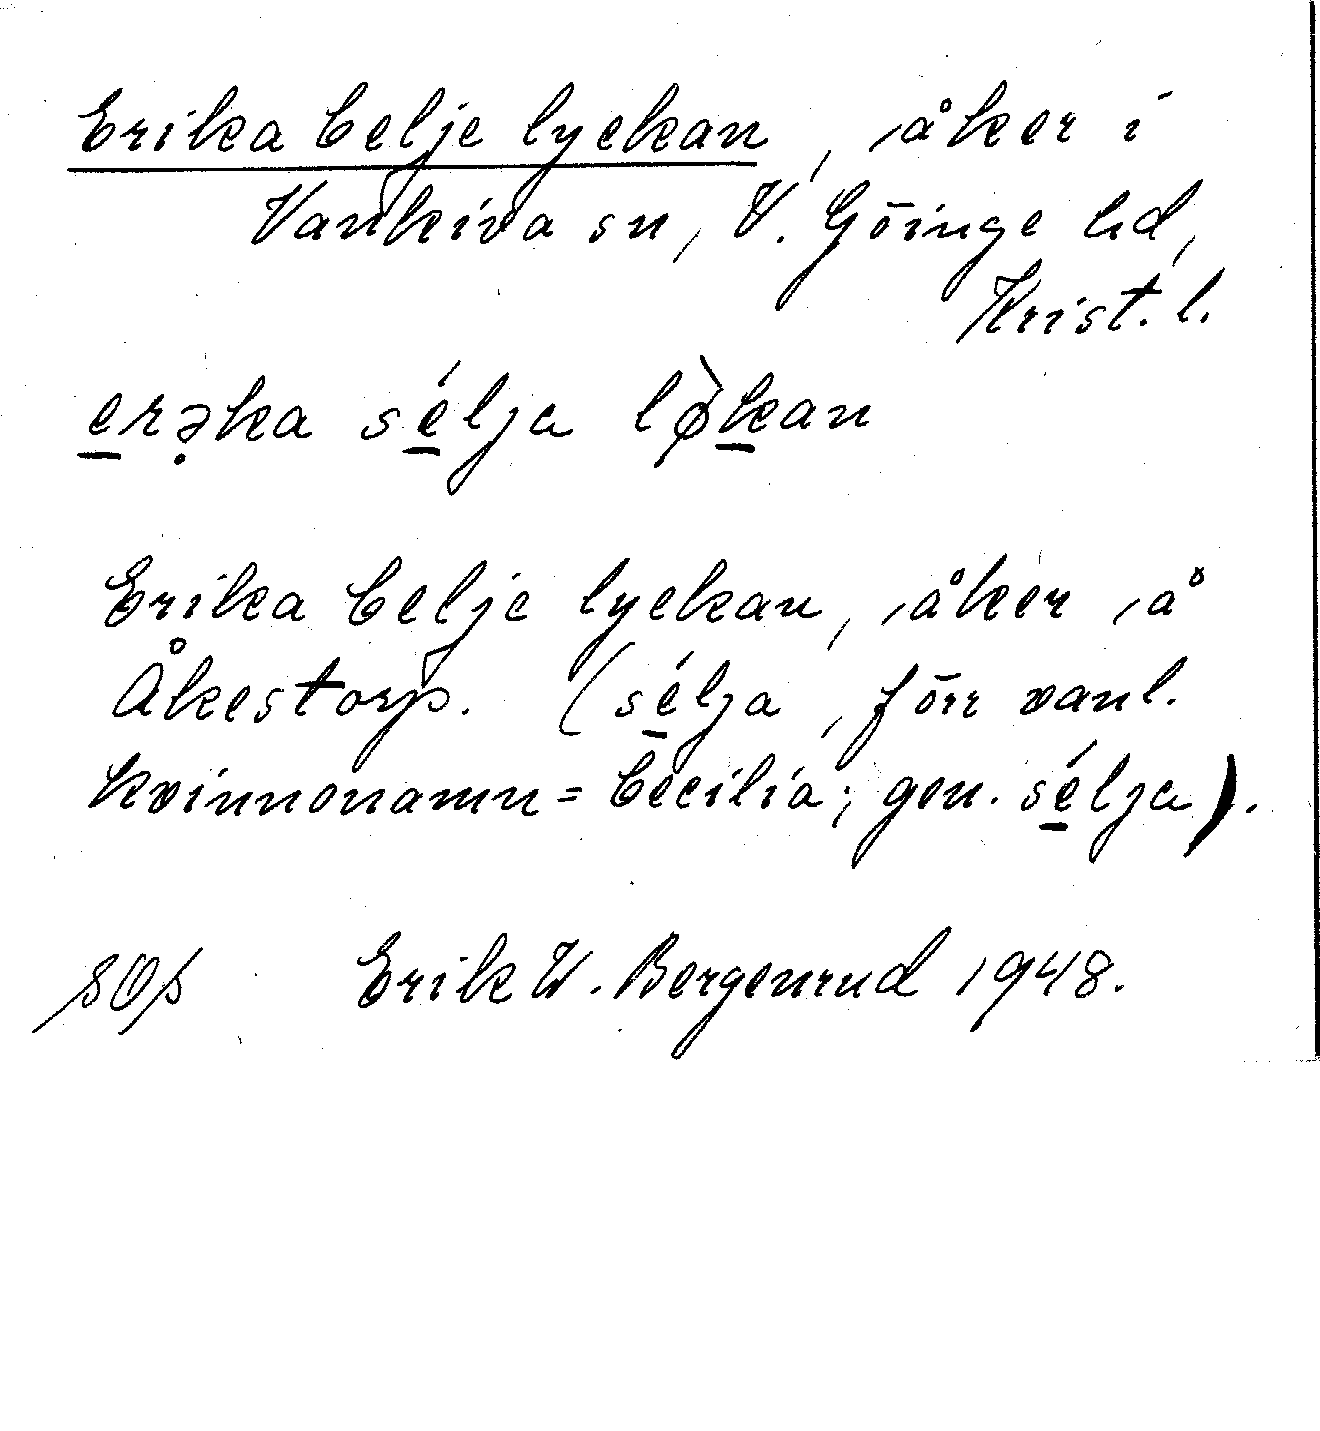 Erika Celje lyckan, åker i
Vankiva sn, V. Göinge hd,
Krist. l.
erə̣ka sélja lø̀kan
Erika Celje lyckan, åker å
Åkestorp. (sélja, förr vanl.
kvinnonamn = Cecilia; gen. sélja).
Erik W. Bergenrud 1948.